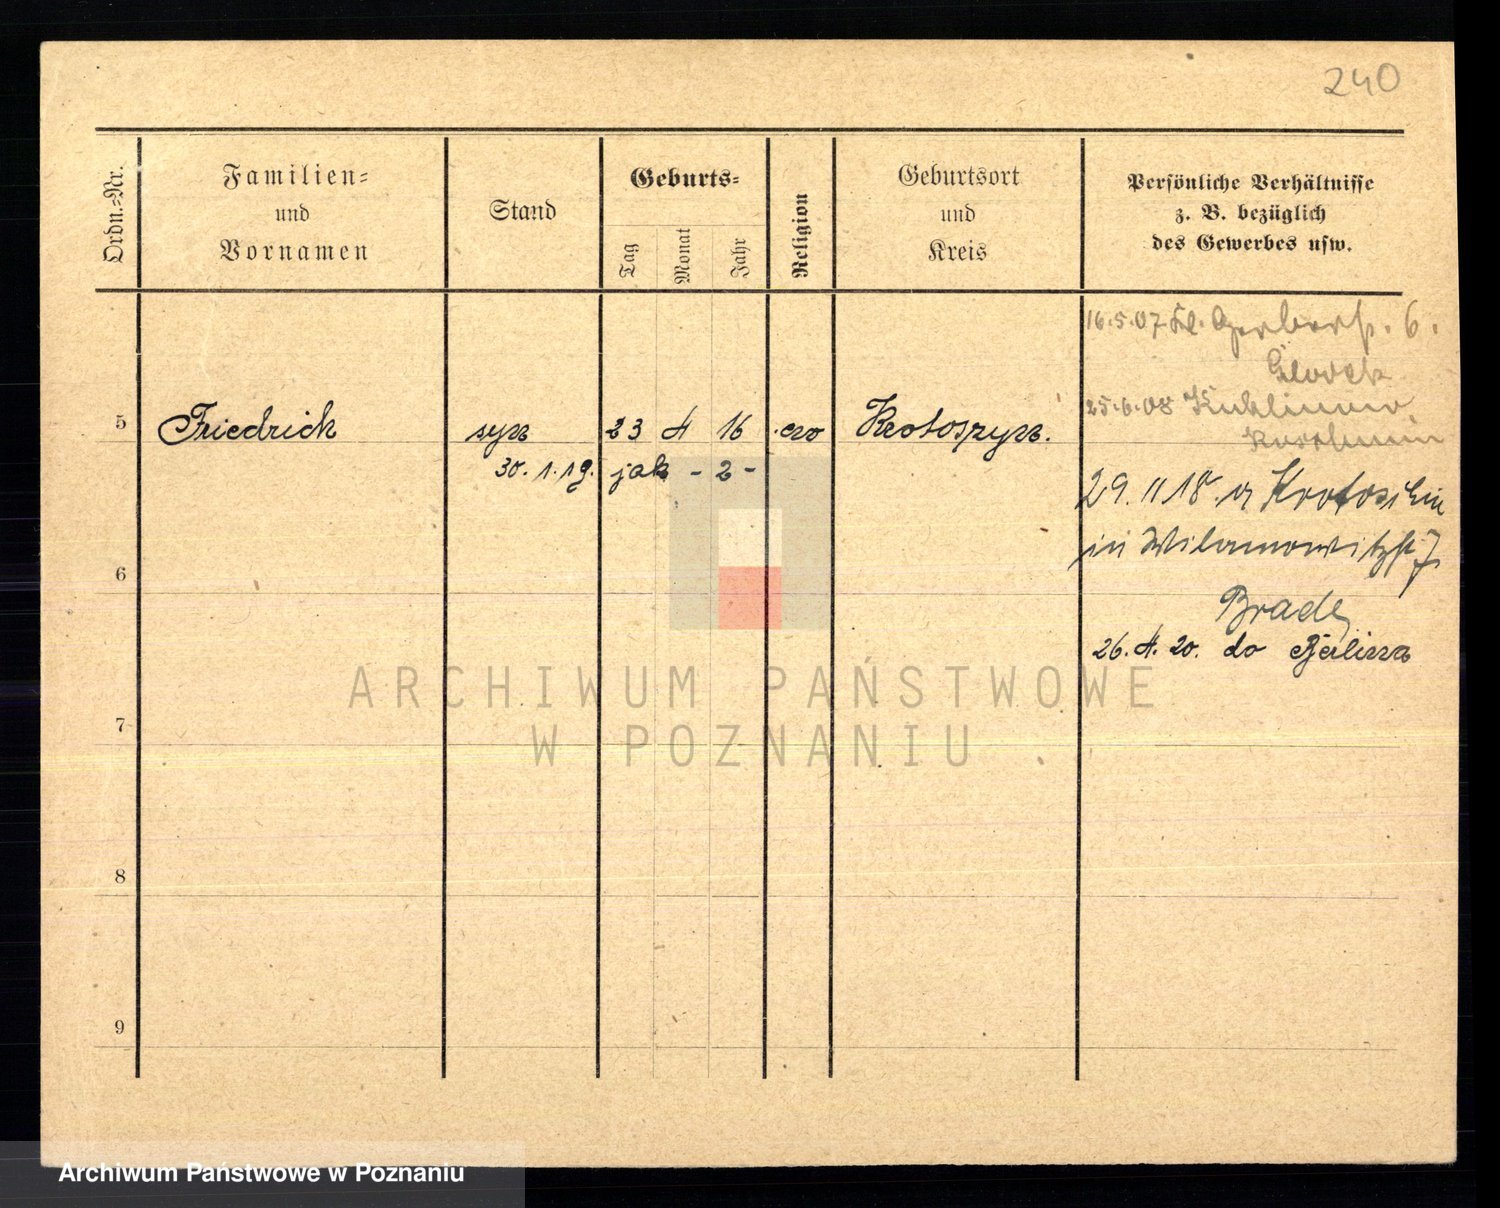 240
Ordn.-Nr.
Familien-
und
Vornamen
Stand
Geburts-
Tag
Monat
Jahr
Religion
Geburtsort
und
Kreis
Persönliche Verhältnisse
z. B. bezüglich
des Gewerbes usw.
16.5.07 Kl. Gerberstr. 6.
25.6.08
5 Friedrich syn 23 4 16 Krotoszyn.
30.1.19. jak - 2 -
29.11 18. Krotoschin
in Wilamowitzstr 7
6
Brade
26. 4. 20. do Berlina
ARCHIWUM PAŃSTWOWE
W POZNANIU
7
8
9
Archiwum Państwowe w Poznaniu